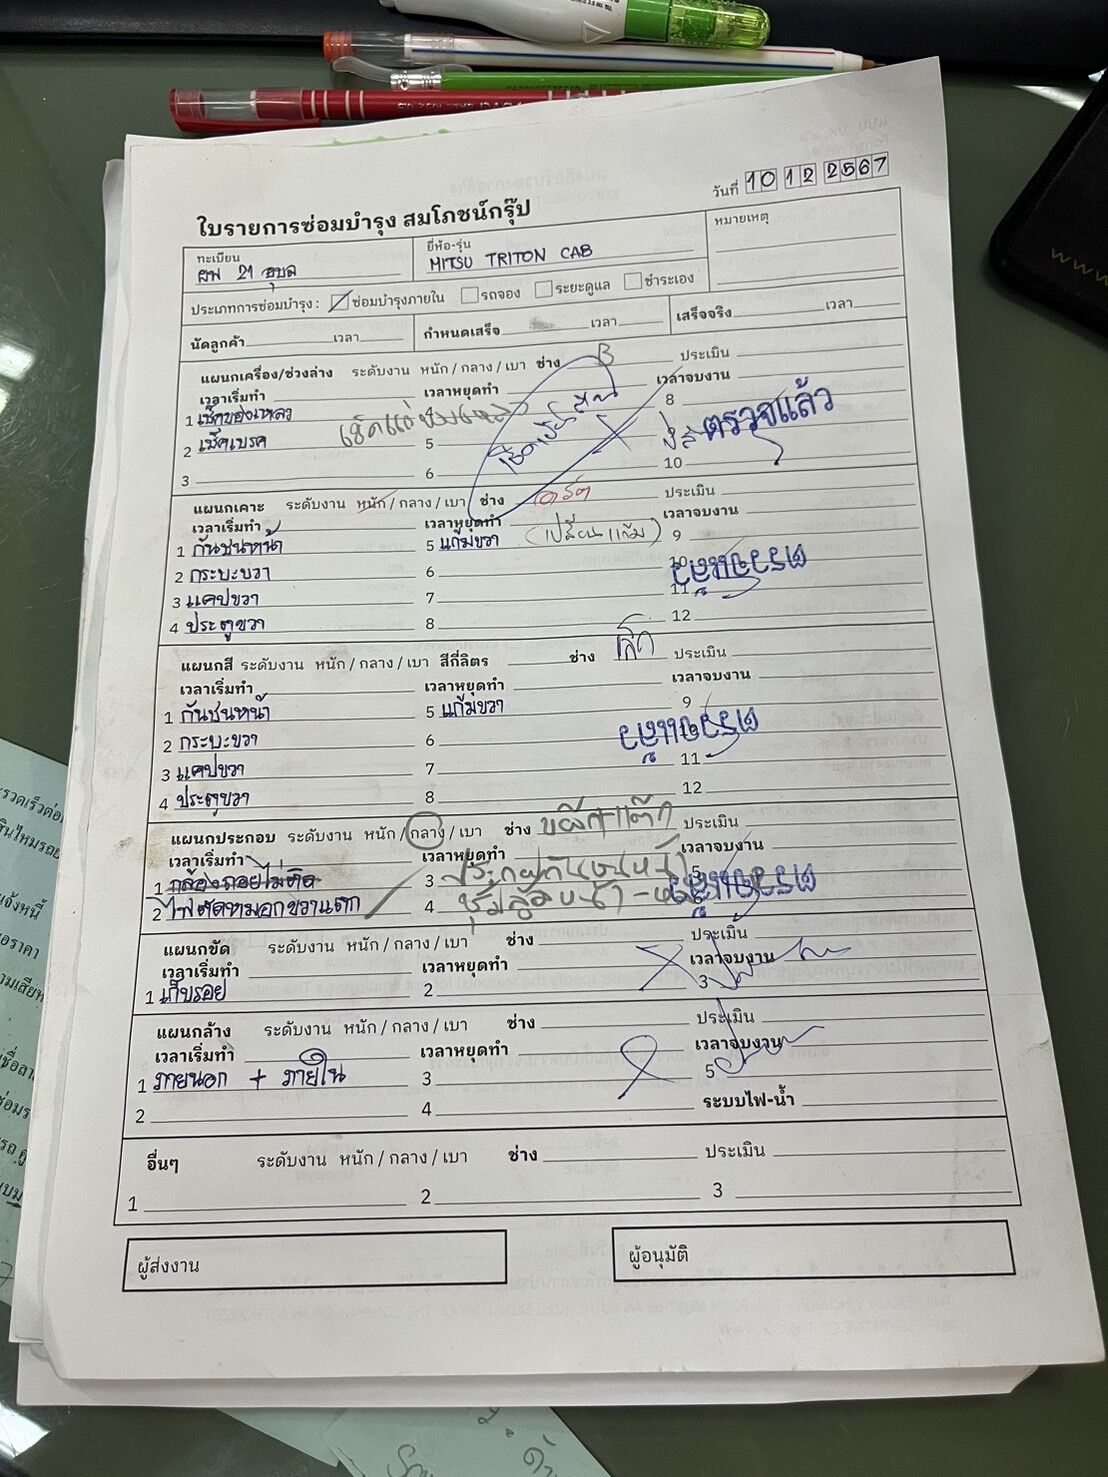 วันที่ 10 12 2567
ใบรายการซ่อมบำรุง สมโภชน์กรุ๊ป
ทะเบียน
21 อุบล
ยี่ห้อ-รุ่น
MITSU TRITON CAB
หมายเหตุ
ประเภทการซ่อมบำรุง : ซ่อมบำรุงภายใน รถจอง ระยะดูแล ชำระเอง
นัดลูกค้า เวลา กำหนดเสร็จ เวลา เสร็จจริง เวลา
แผนกเครื่อง/ช่วงล่าง ระดับงาน หนัก / กลาง / เบา ช่าง B ประเมิน
เวลาเริ่มทำ เวลาหยุดทำ เวลาจบงาน
1 เช็คของเหลว 4 8
2 เช็คเบรค 5 ตรวจแล้ว
3 6 10
แผนกเคาะ ระดับงาน หนัก / กลาง / เบา ช่าง ประเมิน
เวลาเริ่มทำ เวลาหยุดทำ เวลาจบงาน
1 กันชนหน้า 5 แก้มขวา (เปลี่ยนแก้ม) 9
2 กระบะขวา 6 10
3 แคปขวา 7 11 ตรวจแล้ว
4 ประตูขวา 8 12
แผนกสี ระดับงาน หนัก / กลาง / เบา สีกี่ลิตร ช่าง เล็ก ประเมิน
เวลาเริ่มทำ เวลาหยุดทำ เวลาจบงาน
1 กันชนหน้า 5 แก้มขวา 9
2 กระบะขวา 6 ตรวจแล้ว
3 แคปขวา 7 11
4 ประตูขวา 8 12
แผนกประกอบ ระดับงาน หนัก / กลาง / เบา ช่าง ประเมิน
เวลาเริ่มทำ เวลาหยุดทำ เวลาจบงาน
1 กล้องถอยไม่ติด 3 5
2 ไฟตัดหมอกขวาแตก 4 ตรวจแล้ว
แผนกขัด ระดับงาน หนัก / กลาง / เบา ช่าง ประเมิน
เวลาเริ่มทำ เวลาหยุดทำ เวลาจบงาน
1 เก็บรอย 2 3
แผนกล้าง ระดับงาน หนัก / กลาง / เบา ช่าง ประเมิน
เวลาเริ่มทำ เวลาหยุดทำ เวลาจบงาน
1 ภายนอก + ภายใน 3 5
2 4 ระบบไฟ-น้ำ
อื่นๆ ระดับงาน หนัก / กลาง / เบา ช่าง ประเมิน
1 2 3
ผู้ส่งงาน ผู้อนุมัติ